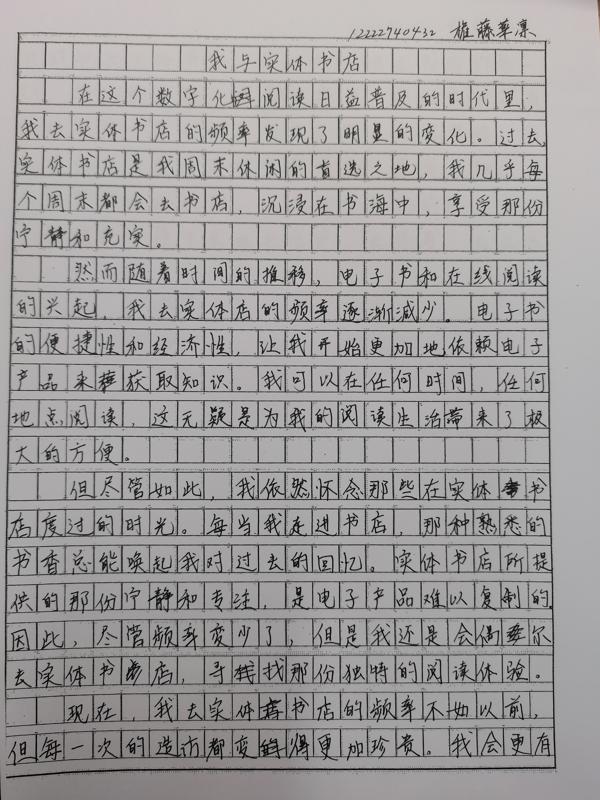 12222740432 藤苹凛
我与实体书店
在这个数字化阅读日益普及的时代里，
我去实体书店的频率发现了明显的变化。过去，
实体书店是我周末休闲的首选之地，我几乎每
个周末都会去书店，沉浸在书海中，享受那份
宁静和充实。
然而随着时间的推移，电子书和在线阅读
的兴起，我去实体店的频率逐渐减少。电子书
的便捷性和经济性，让我开始更加地依赖电子
产品来获取知识。我可以在任何时间，任何
地点阅读，这无疑是为我的阅读生活带来了极
大的方便。
但尽管如此，我依然怀念那些在实体书
店度过的时光。每当我走进书店，那种熟悉的
书香总能唤起我对过去的回忆。实体书店所提
供的那份宁静和专注，是电子产品难以复制的。
因此，尽管频率变少了，但是我还是会偶尔
去实体书店，寻找那份独特的阅读体验。
现在，我去实体书店的频率不如以前，
但每一次的造访都变得更加珍贵。我会更有